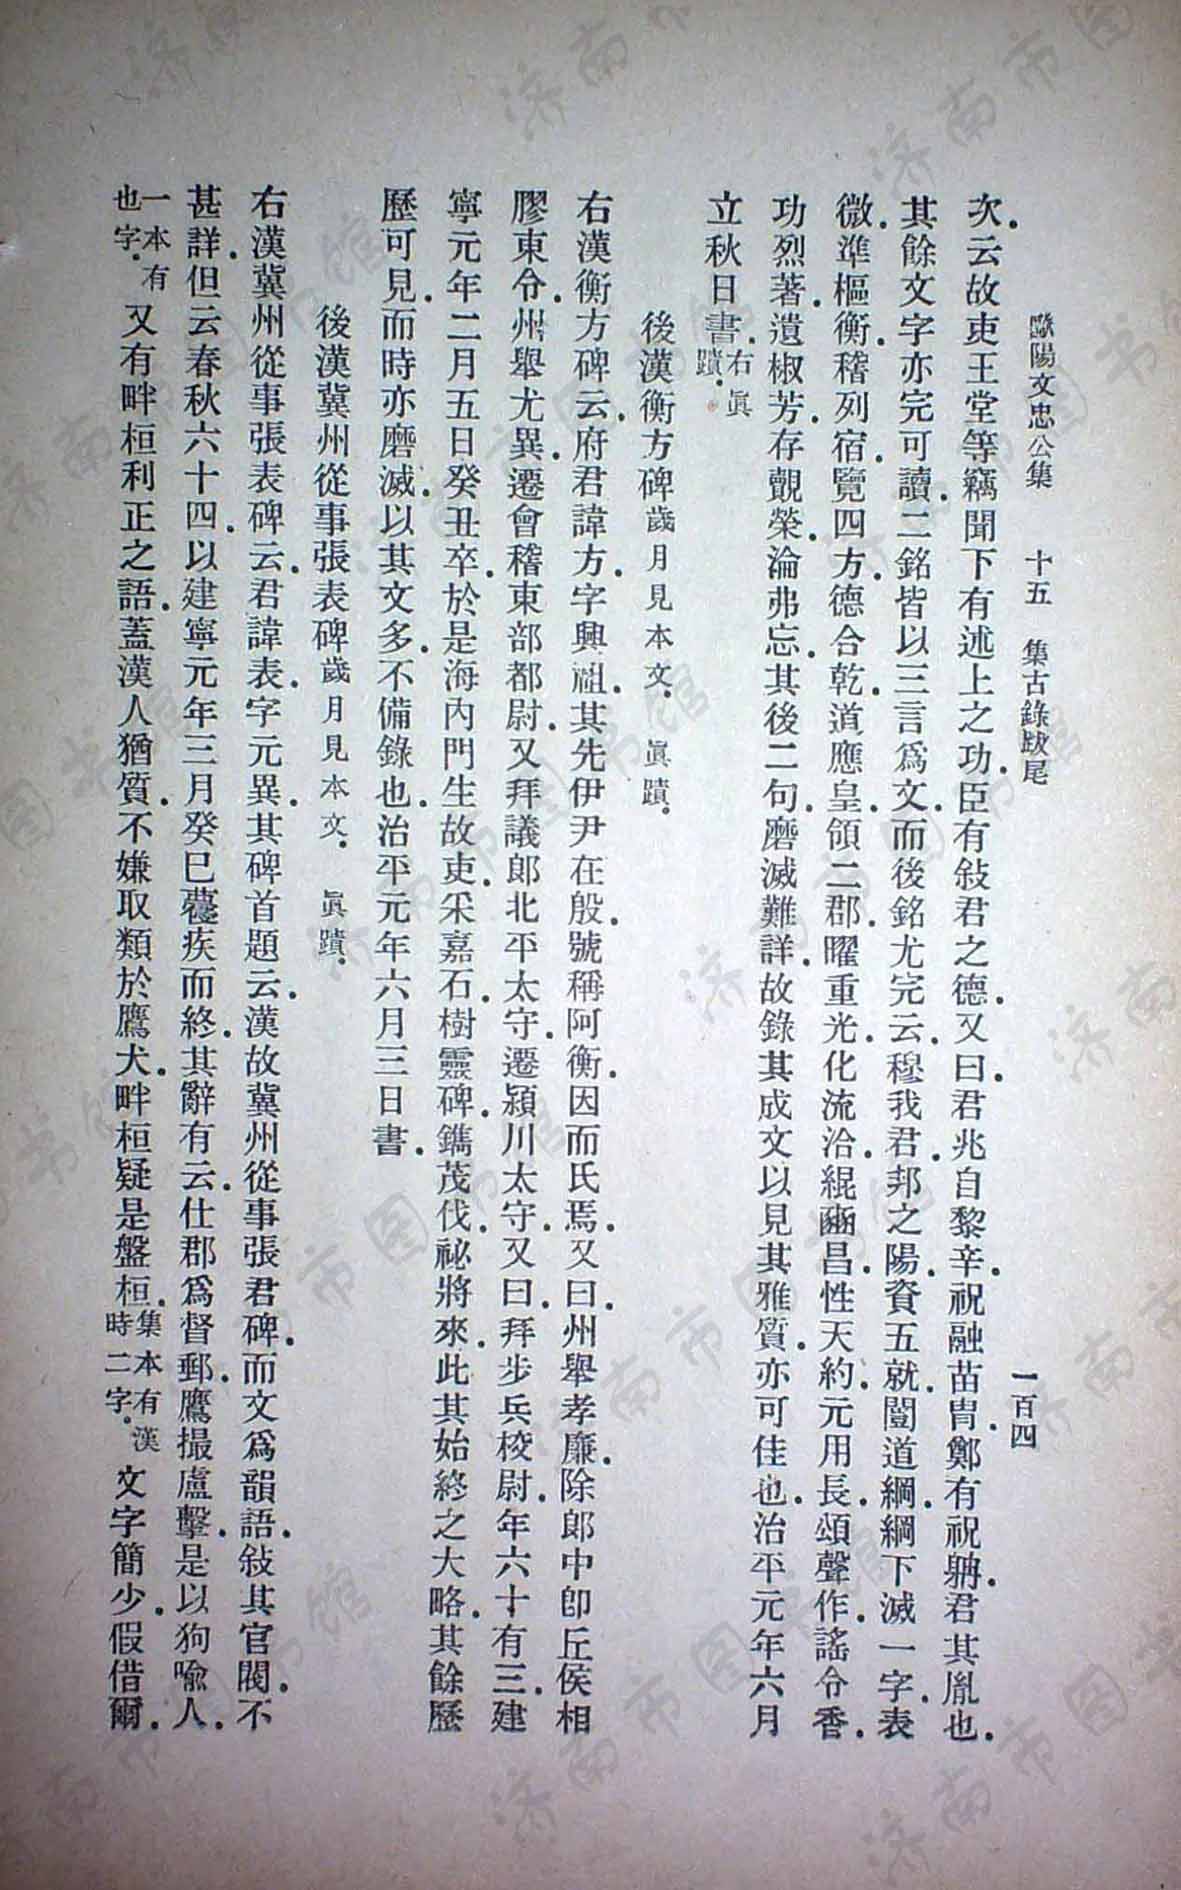 歐陽文忠公集　十五　集古錄跋尾　一百四
次．云故吏王堂等竊聞下有述上之功．臣有敍君之德．又曰．君兆自黎辛．祝融苗胄．鄭有祝聃．君其胤也．
其餘文字亦完可讀．二銘皆以三言爲文．而後銘尤完．云．穆我君．邦之陽．資五就．闓道綱．綱下滅一字．表
微．準樞衡．稽列宿．覽四方．德合乾．道應皇．領二郡．曜重光．化流洽．綏𡺳昌．性天約．元用長．頌聲作．謠令香．
功烈著．遺椒芳．存覿榮．淪弗忘．其後二句．磨滅難詳．故錄其成文以見其雅質．亦可佳也．治平元年六月
立秋日書．右眞蹟．
後漢衡方碑歲月見本文．眞蹟．
右漢衡方碑云．府君諱方．字興祖．其先伊尹在殷．號稱阿衡．因而氏焉．又曰．州舉孝廉．除郎中卽丘侯相
膠東令．州舉尤異．遷會稽東部都尉．又拜議郎北平太守．遷潁川太守．又曰．拜步兵校尉．年六十有三．建
寧元年二月五日癸丑卒．於是海內門生故吏．采嘉石．樹靈碑．鐫茂伐．祕將來．此其始終之大略．其餘歷
歷可見．而時亦磨滅．以其文多．不備錄也．治平元年六月三日書．
後漢冀州從事張表碑歲月見本文．眞蹟．
右漢冀州從事張表碑云．君諱表．字元異．其碑首題云．漢故冀州從事張君碑．而文爲韻語．敍其官閥．不
甚詳．但云春秋六十四．以建寧元年三月癸巳薨疾而終．其辭有云．仕郡爲督郵．鷹撮盧擊．是以狗喩人．
一本有也字．又有畔桓利正之語．蓋漢人猶質．不嫌取類於鷹犬．畔桓疑是盤桓．集本有漢時二字．文字簡少．假借爾．